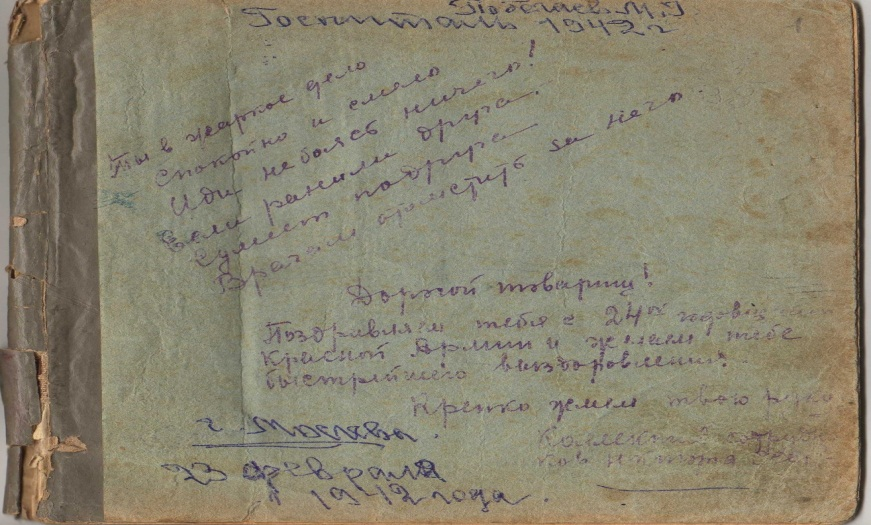 М. Г.
Госпиталь 1942 г
Ты в жаркое дело
спокойно и смело
Иди не боясь ничего!
Если ранили друга.
Сумеет подруга
Врагам отомстить за него.
Дорогой товарищ!
Поздравляем тебя с 24ой
Красной Армии и желаем тебе
быстрейшего выздоровления.
Крепко жмем твою руку
г. Москва.
23 февраля
1942 года.